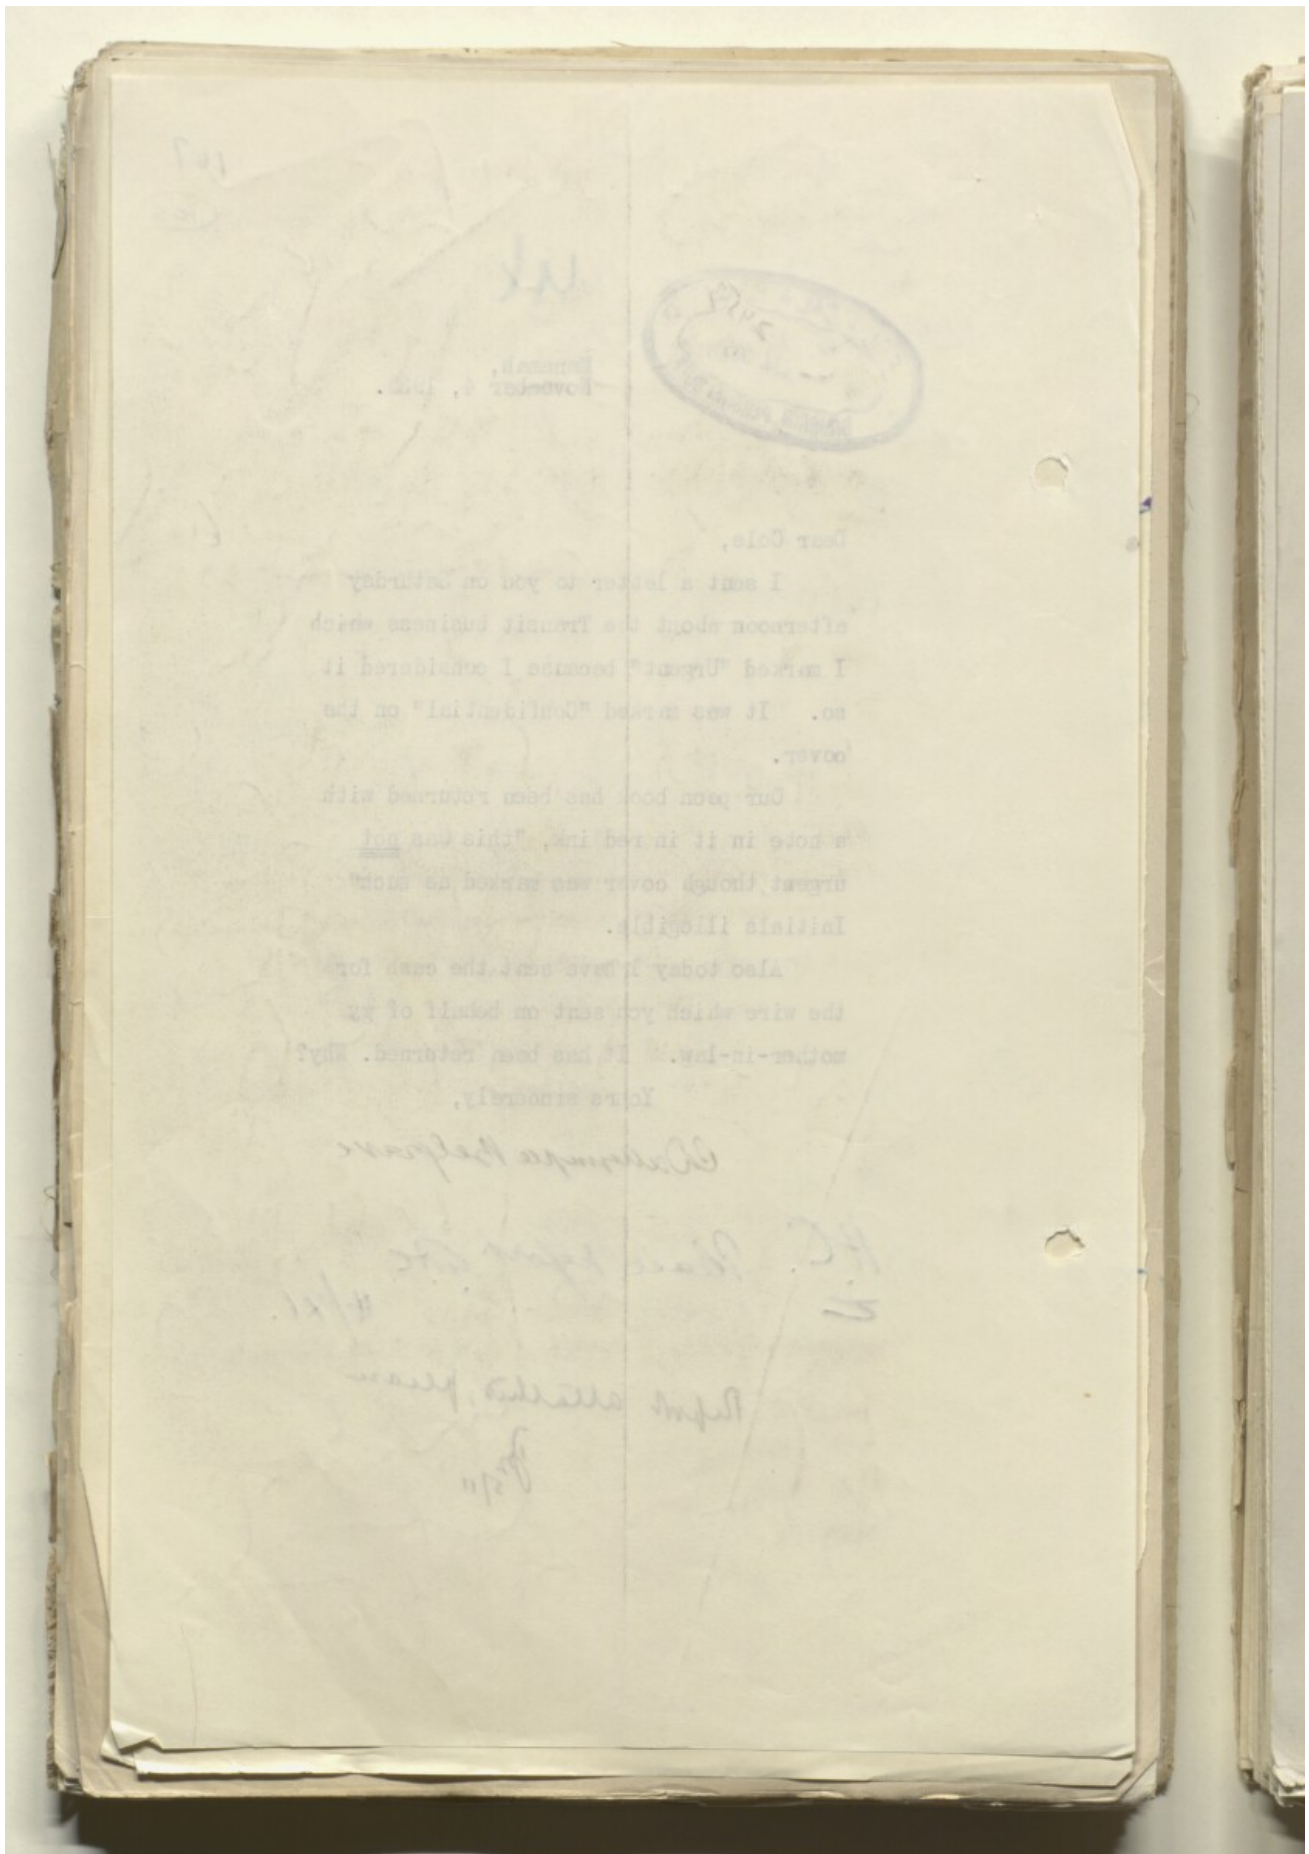 November 4,
Dear Cole,
I sent a letter to you on Saturday
afternoon about the Transit business which
I marked "Urgent" because I considered it
so. It was marked "Confidential" on the
cover.
Our peon book has been returned with
a note in it in red ink, "this was not
urgent though cover was marked as such"
Initials illegible.
Also today I have sent the cash for
the wire which you sent on behalf of my
mother-in-law. It has been returned. Why?
Yours sincerely,
C Dalrymple Belgrave
H.C.
Please
Report attached please